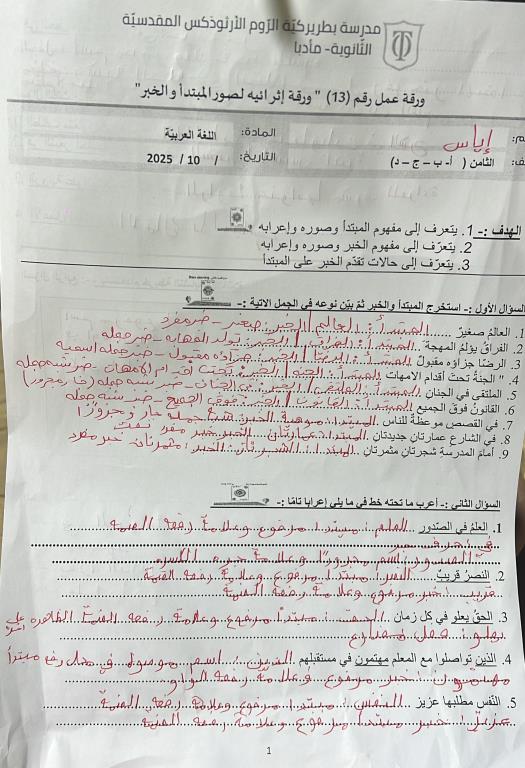 مدرسة بطريركيّة الرّوم الأرثوذكس المقدسيّة
الثّانوية- مأدبا
ورقة عمل رقم (13) " ورقة إثرائيه لصور المبتدأ والخبر"
إياس المادة: اللغة العربيّة
الثامن ( أ- ب – ج – د) التاريخ: / 10 / 2025
الهدف :- 1. يتعرف إلى مفهوم المبتدأ وصوره وإعرابه
2. يتعرّف إلى مفهوم الخبر وصوره وإعرابه
3. يتعرّف إلى حالات تقدّم الخبر على المبتدأ
السؤال الأول :- استخرج المبتدأ والخبر ثمّ بيّن نوعه في الجمل الاتية :-
1. العالمُ صغيرٌ المبتدأ: العالم / الخبر: صغير - خبر مفرد
2. الفراقُ يؤلمُ المهجة المبتدأ: الفراق / الخبر: - خبر جملة
3. الرضا جزاؤه مقبولٌ المبتدأ: الرضا / الخبر: جزاؤه مقبول - خبر جملة اسمية
4. " الجنةُ تحتَ أقدام الامهات المبتدأ: الجنة / الخبر: تحت اقدام الامهات - خبر شبه جملة
5. الملتقى في الجنان المبتدأ: الملتقى / الخبر: في الجنان - خبر شبه جملة (جار مجرور)
6. القانونُ فوقَ الجميع المبتدأ: القانون / الخبر: فوق الجميع - خبر شبه جملة
7. في القصص موعظةٌ للناس المبتدا: موعظة الخبر: شبه جملة جار و مجرور
8. في الشارع عمارتان جديدتان المبتدا: عمارتان الخبر: خبر مفرد
9. أمامَ المدرسةِ شجرتانِ مثمرتانِ المبتدا: الشجرتان الخبر: مثمرتان خبر مفرد
السؤال الثاني :- أعرب ما تحته خط في ما يلي إعرابا تامّا :-
1. العلمُ في الصدور العلم: مبتدا مرفوع وعلامة رفعه الضمة
في: حرف جر
الصدور: اسم مجرور وعلامة جره الكسره
2. النصرُ قريبٌ النصر: مبتدا مرفوع وعلامة رفعه الضمة
قريب: خبر مرفوع وعلامة رفعه الضمة
3. الحقُ يعلو في كل زمان الحق: مبتدأ مرفوع وعلامة رفعه الضمة الظاهره على اخره
يعلو: فعل مضارع
4. الذين تواصلوا مع المعلم مهتمون في مستقبلهم الذين: اسم موصول في محل رفع مبتدأ
مهتمون: خبر مرفوع وعلامة رفعه الواو
5. النّفس مطلبها عزيز النفس: مبتدا مرفوع وعلامة رفعه الضمة
عزيز: خبر مرفوع وعلامة رفعه الضمة
1